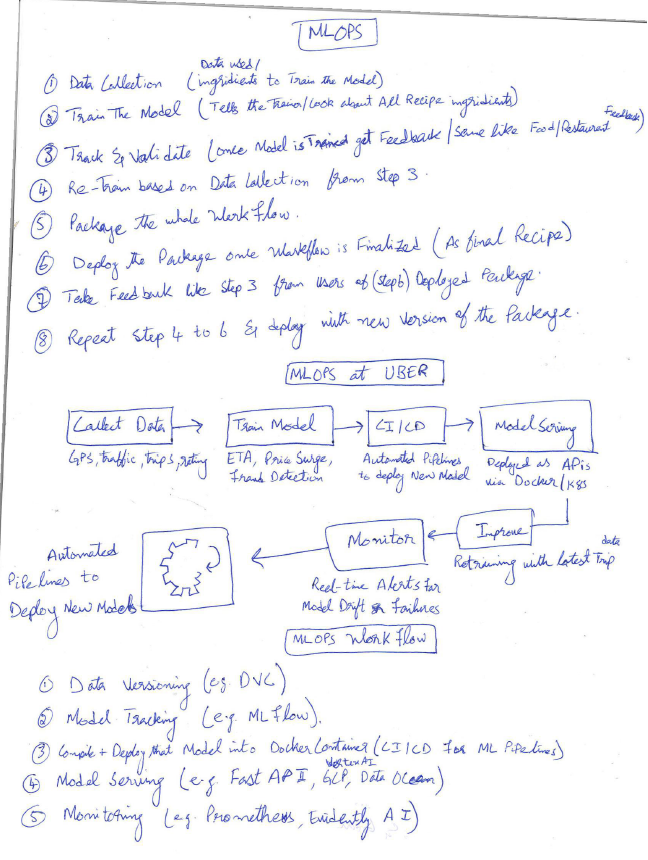 MLOPS
Data used/
① Data Collection (ingridients to Train the Model)
② Train The Model (Tells the Trainer/Cook about All Recipe ingridients)
Feedback)
③ Track & Validate (once Model is Trained get Feedback / Same like Food/Restaurant
④ Re-Train based on Data Collection from Step 3.
⑤ Package the whole Workflow.
⑥ Deploy the Package once Workflow is Finalized (As final Recipe)
⑦ Take Feedback like Step 3 from users of (step6) Deployed Package.
⑧ Repeat Step 4 to 6 & deploy with new version of the Package.
MLOPS at UBER
Collect Data → Train Model → CI/CD → Model Serving
GPS, traffic, trips, rating
ETA, Price Surge,
Fraud Detection
Automated Pipelines
to deploy New Model
Deployed as APIs
via Docker/K8S
Improve
data
Retraining with latest Trip
Monitor
Real-time Alerts for
Model Drift or Failures
Automated
PiPelines to
Deploy New Models
MLOPS Work Flow
① Data Versioning (eg. DVC)
② Model Tracking (e.g. MLflow).
③ Compile + Deploy that Model into Docker Container (CI/CD for ML Pipelines)
Vertex AI
④ Model Serving (e.g. Fast API, GCP, Data Ocean)
⑤ Monitoring (eg. Prometheus, Evidently AI)